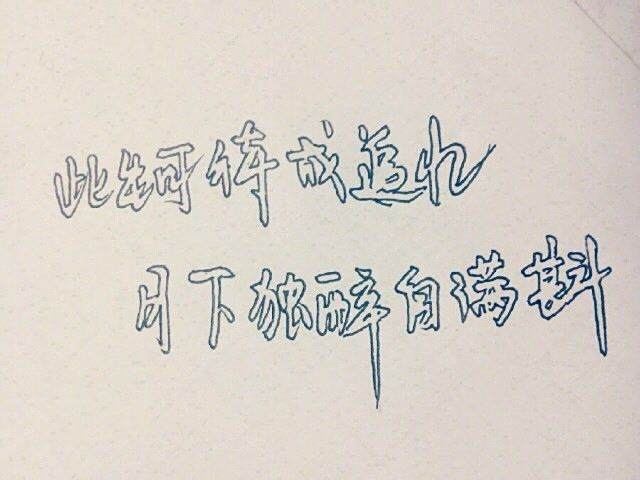 此情可待成追忆
月下独醉自满斟